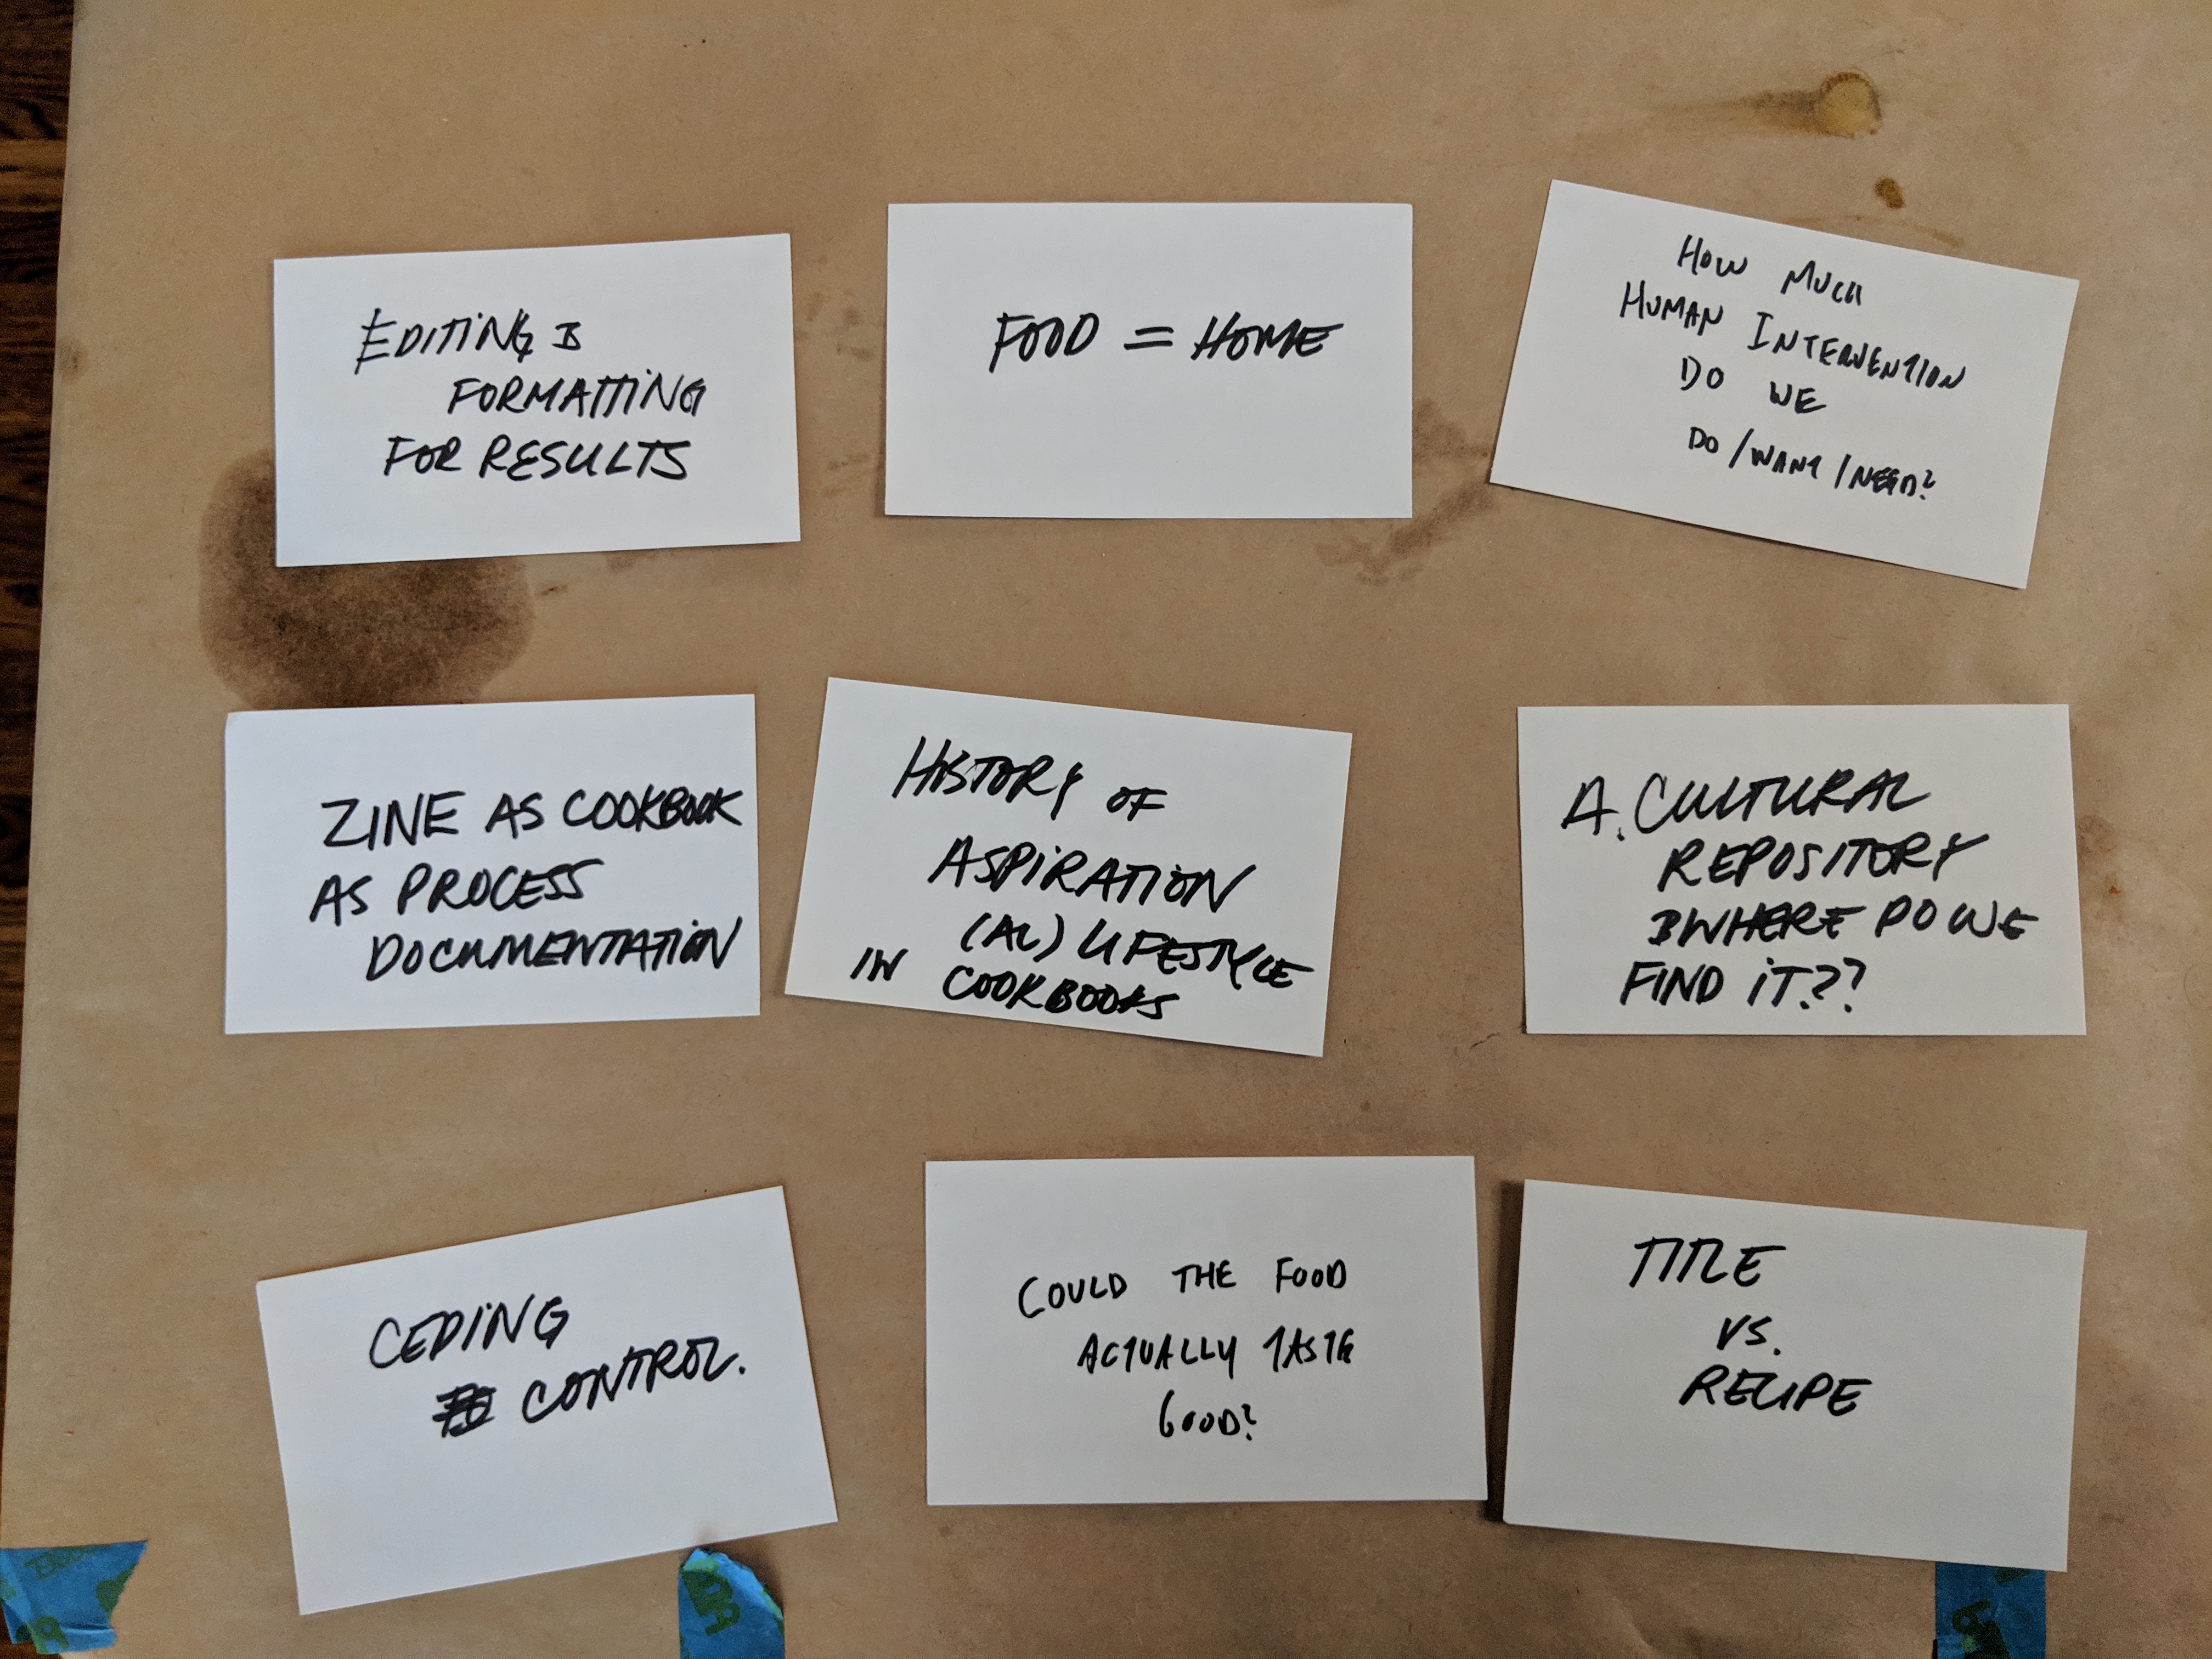 EDITING &
FORMATTING
FOR RESULTS
FOOD = HOME
HOW MUCH
HUMAN INTERVENTION
DO WE
DO / WANT / NEED?
ZINE AS COOKBOOK
AS PROCESS
DOCUMENTATION
HISTORY OF
ASPIRATION
(AL) LIFESTYLE
IN COOKBOOKS
A. CULTURAL
REPOSITORY
&WHERE DO WE
FIND IT??
CEDING
CONTROL.
COULD THE FOOD
ACTUALLY TASTE
GOOD?
TITLE
VS.
RECIPE